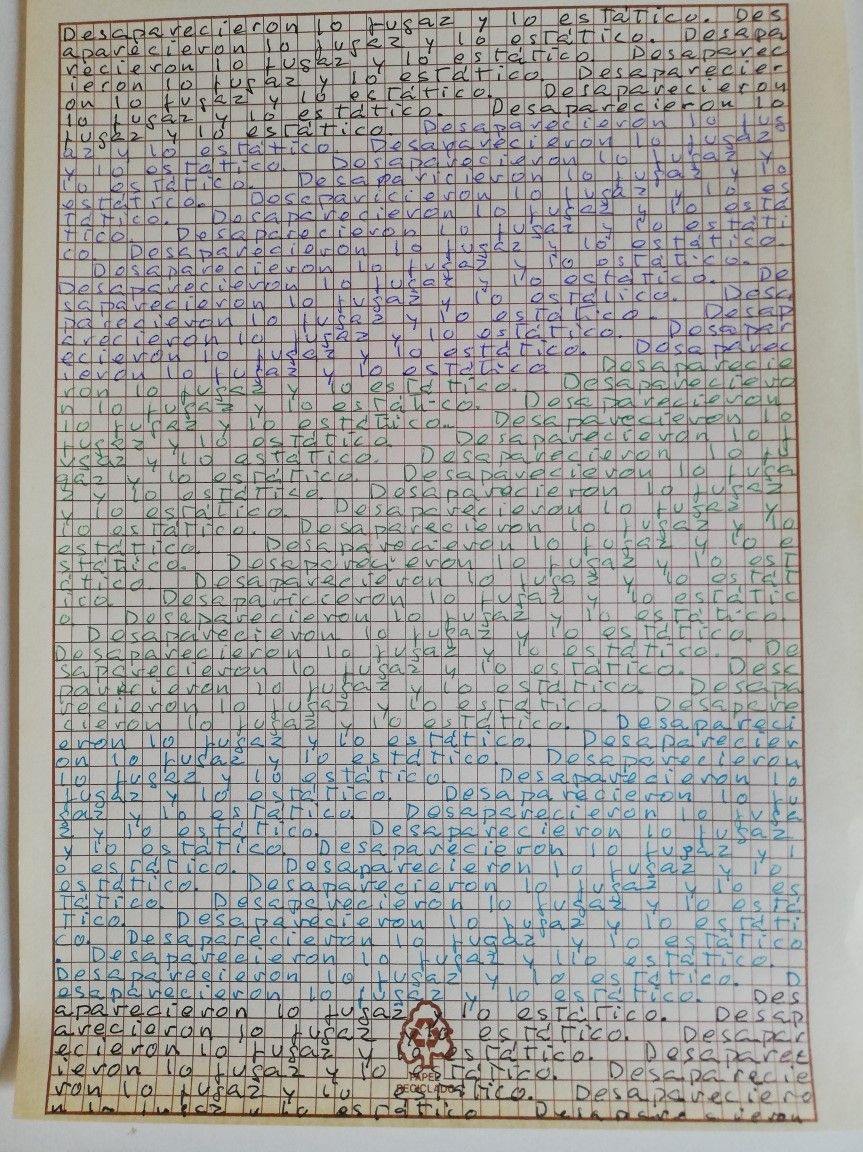 Desaparecieron lo fugaz y lo estático. Des
aparecieron lo fugaz y lo estático. Desapa
recieron lo fugaz y lo estático. Desaparec
ieron lo fugaz y lo estático. Desaparecier
on lo fugaz y lo estático. Desaparecieron
lo fugaz y lo estático. Desaparecieron lo
fugaz y lo estático. Desaparecieron lo fug
az y lo estático. Desaparecieron lo fugaz
y lo estático. Desaparecieron lo fugaz y
lo estático. Desaparicieron lo fugaz y lo
estático. Desaparicieron lo fugaz y lo es
tático. Desaparecieron lo fugaz y lo está
tico. Desaparecieron lo fugaz y lo estáti
co. Desaparecieron lo fugaz y lo estático.
Desaparecieron lo fugaz y lo estático.
Desaparecieron lo fugaz y lo estático. De
saparecieron lo fugaz y lo estático. Desa
parecieron lo fugaz y lo estático. Desap
arecieron lo fugaz y lo estático. Desapar
ecieron lo fugaz y lo estático. Desaparec
ieron lo fugaz y lo estático Desaparecie
ron lo fugaz y lo estático. Desapareciero
n lo fugaz y lo estático. Desaparecieron
lo fugaz y lo estático. Desaparecieron lo
fugaz y lo estático. Desaparecieron lo f
ugaz y lo estático. Desaparecieron lo fu
gaz y lo estático. Desaparecieron lo fuga
z y lo estático. Desaparecieron lo fugaz
y lo estático. Desaparecieron lo fugaz y
lo estático. Desaparecieron lo fugaz y lo
estático. Desaparecieron lo fugaz y lo e
stático. Desaparecieron lo fugaz y lo est
ático. Desaparecieron lo fugaz y lo estát
ico. Desaparicieron lo fugaz y lo estátic
o. Desaparecieron lo fugaz y lo estático.
Desaparecieron lo fugaz y lo estático.
Desaparecieron lo fugaz y lo estático. De
saparecieron lo fugaz y lo estático. Desa
parecieron lo fugaz y lo estático. Desapa
recieron lo fugaz y lo estático. Desapare
cieron lo fugaz y lo estático. Desapareci
eron lo fugaz y lo estático. Desaparecier
on lo fugaz y lo estático. Desaparecieron
lo fugaz y lo estático. Desaparecieron lo
fugaz y lo estático. Desaparecieron lo fu
gaz y lo estático. Desaparecieron lo fuga
z y lo estático. Desaparecieron lo fugaz
y lo estático. Desaparecieron lo fugaz y l
o estático. Desaparecieron lo fugaz y lo
estático. Desaparecieron lo fugaz y lo es
tático. Desaparecieron lo fugaz y lo está
tico. Desaparecieron lo fugaz y lo estáti
co. Desaparecieron lo fugaz y lo estático
. Desaparecieron lo fugaz y lo estático.
Desaparecieron lo fugaz y lo estático. D
esaparecieron lo fugaz y lo estático. Des
aparecieron lo fugaz y lo estático. Desap
arecieron lo fugaz y lo estático. Desapar
ecieron lo fugaz y lo estático. Desaparec
ieron lo fugaz y lo estático. Desaparecie
ron lo fugaz y lo estático. Desapareciero
n lo fugaz y lo estático Desaparecieron
PAPEL
RECICLADO